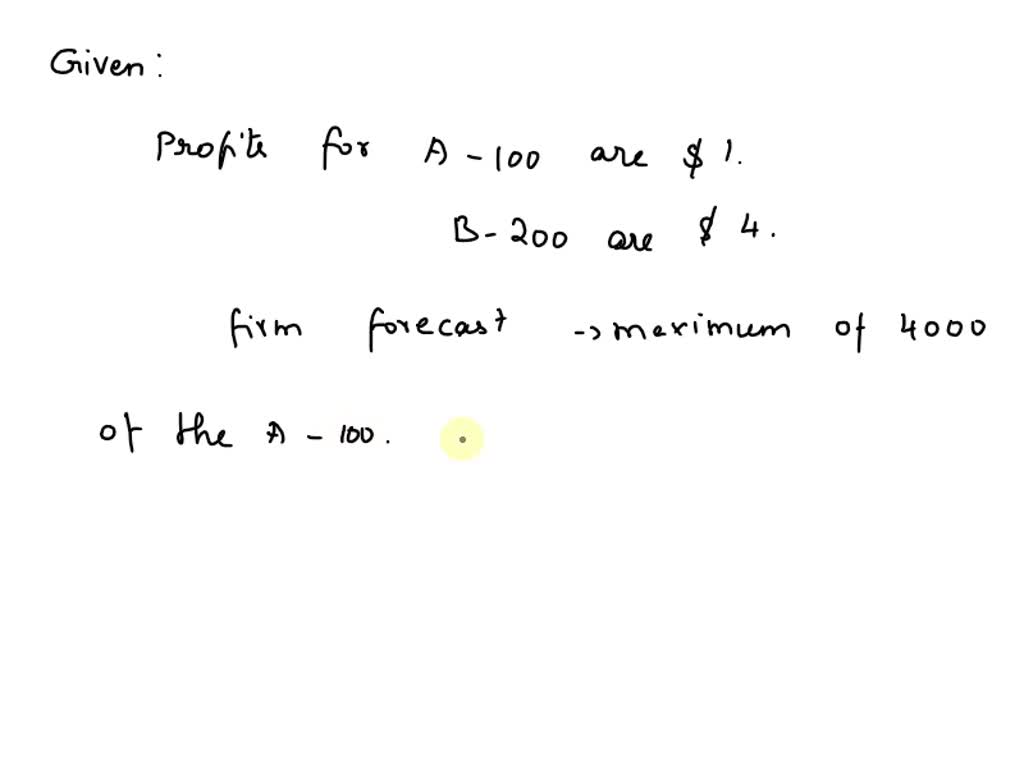 Given:
Profits for A-100 are $1.
B-200 are $4.
firm forecast -> maximum of 4000
of the A-100.